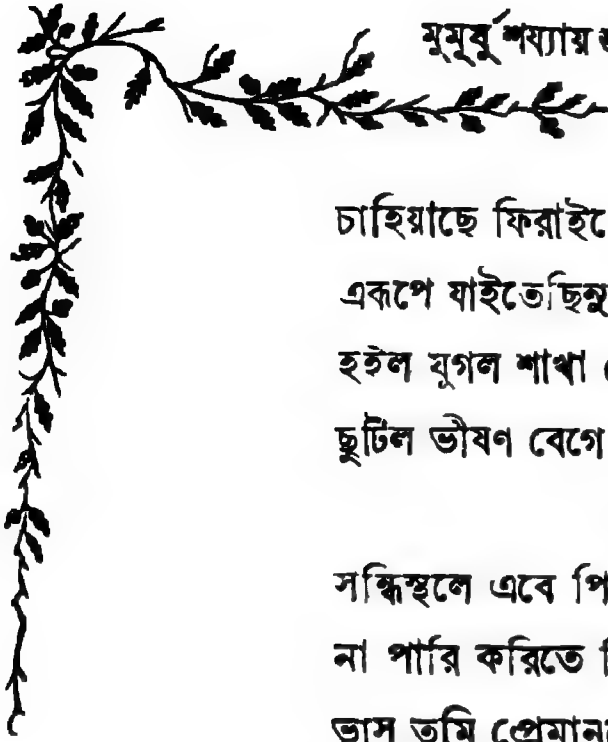 মুমূর্ষু শয্যায়
চাহিয়াছে
একপে যাইতেছিনু
হইল যুগল শাখা
ছুটিল ভীষণ বেগে
সন্ধিস্থলে এবে
না পারি করিতে
ভাস তুমি